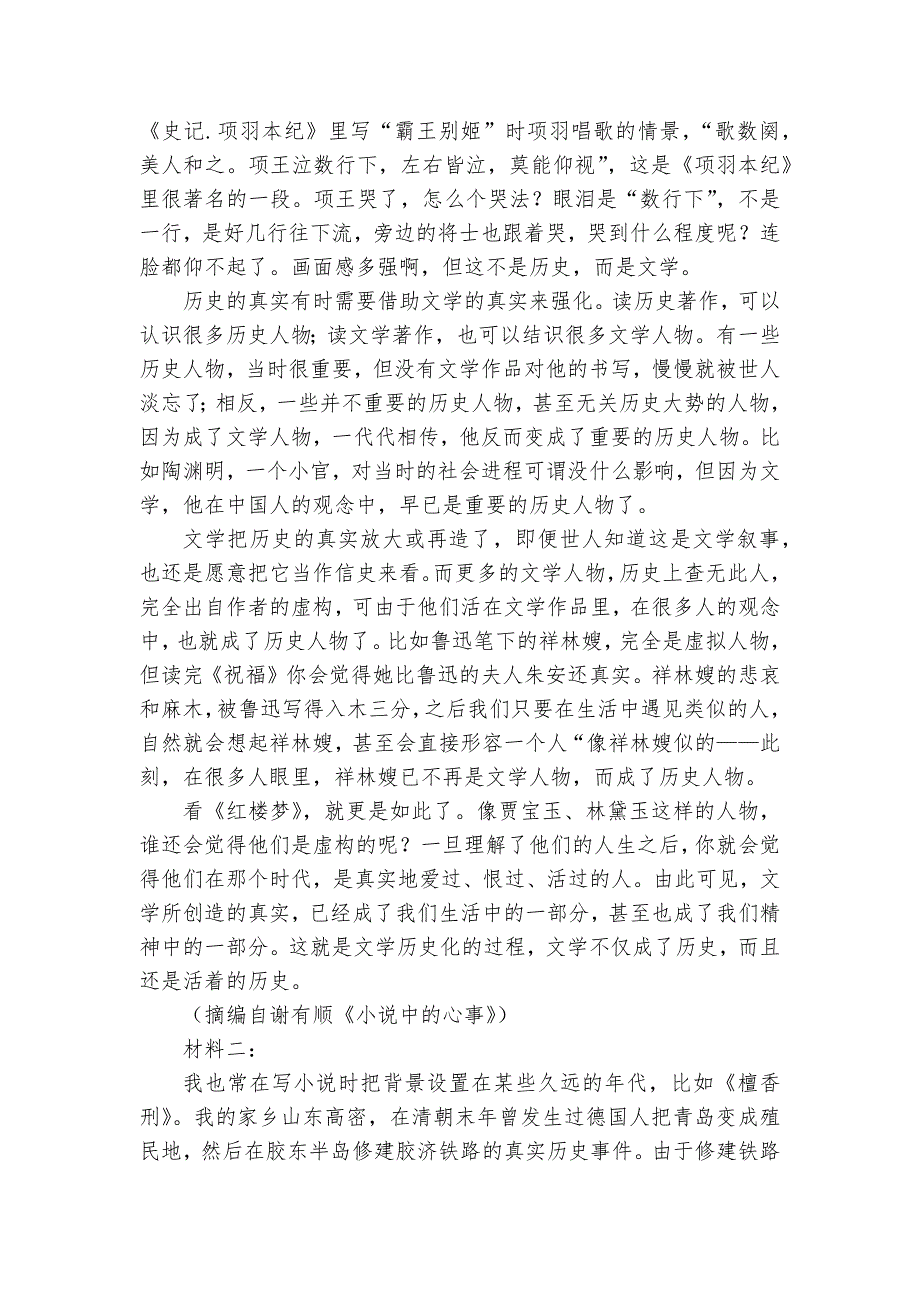 《史记.项羽本纪》里写“霸王别姬”时项羽唱歌的情景，“歌数阕，
美人和之。项王泣数行下，左右皆泣，莫能仰视”，这是《项羽本纪》
里很著名的一段。项王哭了，怎么个哭法？眼泪是“数行下”，不是
一行，是好几行往下流，旁边的将士也跟着哭，哭到什么程度呢？连
脸都仰不起了。画面感多强啊，但这不是历史，而是文学。
历史的真实有时需要借助文学的真实来强化。读历史著作，可以
认识很多历史人物；读文学著作，也可以结识很多文学人物。有一些
历史人物，当时很重要，但没有文学作品对他的书写，慢慢就被世人
淡忘了；相反，一些并不重要的历史人物，甚至无关历史大势的人物，
因为成了文学人物，一代代相传，他反而变成了重要的历史人物。比
如陶渊明，一个小官，对当时的社会进程可谓没什么影响，但因为文
学，他在中国人的观念中，早已是重要的历史人物了。
文学把历史的真实放大或再造了，即便世人知道这是文学叙事，
也还是愿意把它当作信史来看。而更多的文学人物，历史上查无此人，
完全出自作者的虚构，可由于他们活在文学作品里，在很多人的观念
中，也就成了历史人物了。比如鲁迅笔下的祥林嫂，完全是虚拟人物，
但读完《祝福》你会觉得她比鲁迅的夫人朱安还真实。祥林嫂的悲哀
和麻木，被鲁迅写得入木三分，之后我们只要在生活中遇见类似的人，
自然就会想起祥林嫂，甚至会直接形容一个人“像祥林嫂似的——此
刻，在很多人眼里，祥林嫂已不再是文学人物，而成了历史人物。
看《红楼梦》，就更是如此了。像贾宝玉、林黛玉这样的人物，
谁还会觉得他们是虚构的呢？一旦理解了他们的人生之后，你就会觉
得他们在那个时代，是真实地爱过、恨过、活过的人。由此可见，文
学所创造的真实，已经成了我们生活中的一部分，甚至也成了我们精
神中的一部分。这就是文学历史化的过程，文学不仅成了历史，而且
还是活着的历史。
（摘编自谢有顺《小说中的心事》）
材料二：
我也常在写小说时把背景设置在某些久远的年代，比如《檀香
刑》。我的家乡山东高密，在清朝末年曾发生过德国人把青岛变成殖
民地，然后在胶东半岛修建胶济铁路的真实历史事件。由于修建铁路